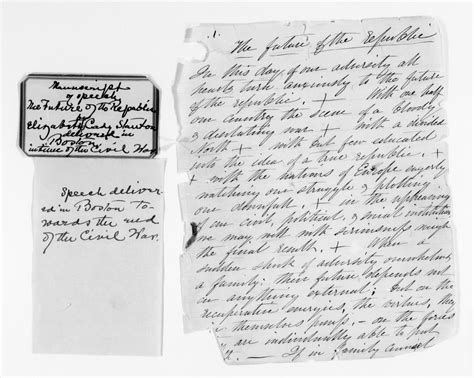 Manuscript
of speech
The Future of the Republic
by
Elizabeth Cady Stanton
delivered in
Boston
in time of the Civil War.
Speech deliver-
ed in Boston to-
wards the end
of the Civil War.
1.
The future of the republic
In this day of our adversity all
hearts turn anxiously to the future
of the republic. + With one half
our country the scene of a bloody
& desolating war + with a divided
North + with but few educated
into the idea of a true republic. +
+ with the nations of Europe eagerly
watching our struggle & plotting
our downfall + in the upheaving
of our civil, political, & social institutions
one may with seriousness weigh
the final result. + When a
sudden shock of adversity overwhelms
a family: their future depends not
on anything external: but on the
recuperative energies, the virtues, they
in themselves possess, – on the forces
are individually able to put
– If in family cannot